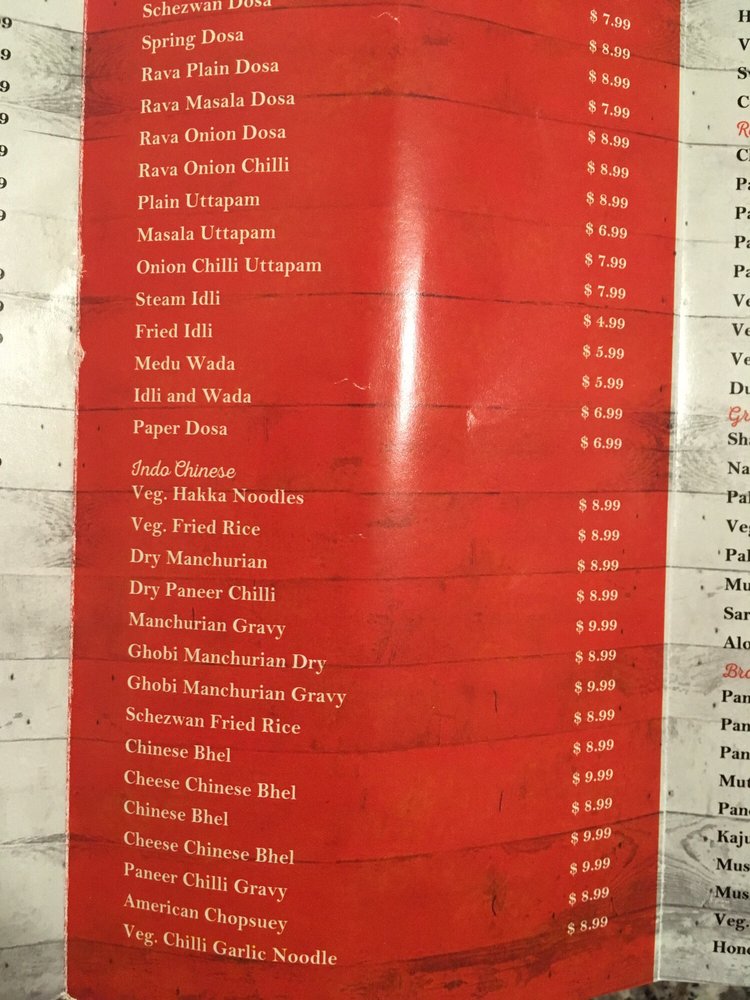 $ 7.99
Schezwan Dosa $ 8.99
Spring Dosa $ 8.99
Rava Plain Dosa $ 7.99
Rava Masala Dosa $ 8.99
Rava Onion Dosa $ 8.99
Rava Onion Chilli $ 8.99
Plain Uttapam $ 6.99
Masala Uttapam $ 7.99
Onion Chilli Uttapam $ 7.99
Steam Idli $ 4.99
Fried Idli $ 5.99
Medu Wada $ 5.99
Idli and Wada $ 6.99
Paper Dosa $ 6.99
Indo Chinese
Veg. Hakka Noodles $ 8.99
Veg. Fried Rice $ 8.99
Dry Manchurian $ 8.99
Dry Paneer Chilli $ 8.99
Manchurian Gravy $ 9.99
Ghobi Manchurian Dry $ 8.99
Ghobi Manchurian Gravy $ 9.99
Schezwan Fried Rice $ 8.99
Chinese Bhel $ 8.99
Cheese Chinese Bhel $ 9.99
Chinese Bhel $ 8.99
Cheese Chinese Bhel $ 9.99
Paneer Chilli Gravy $ 9.99
American Chopsuey $ 8.99
Veg. Chilli Garlic Noodle $ 8.99